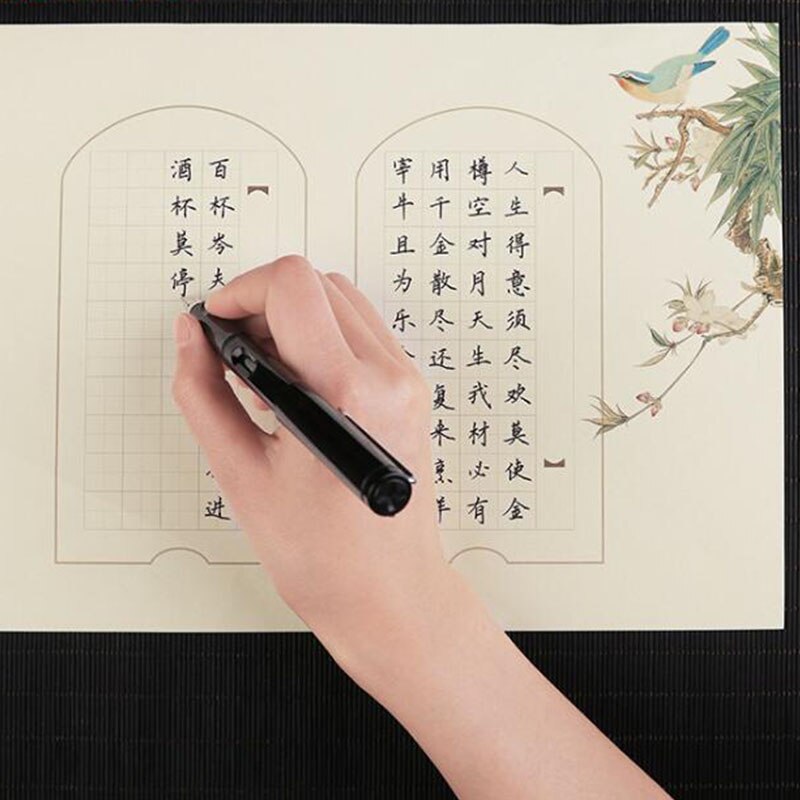 人生得意须尽欢莫使金
樽空对月天生我材必有
用千金散尽还复来烹羊
宰牛且为乐
百杯岑夫进
酒杯莫停